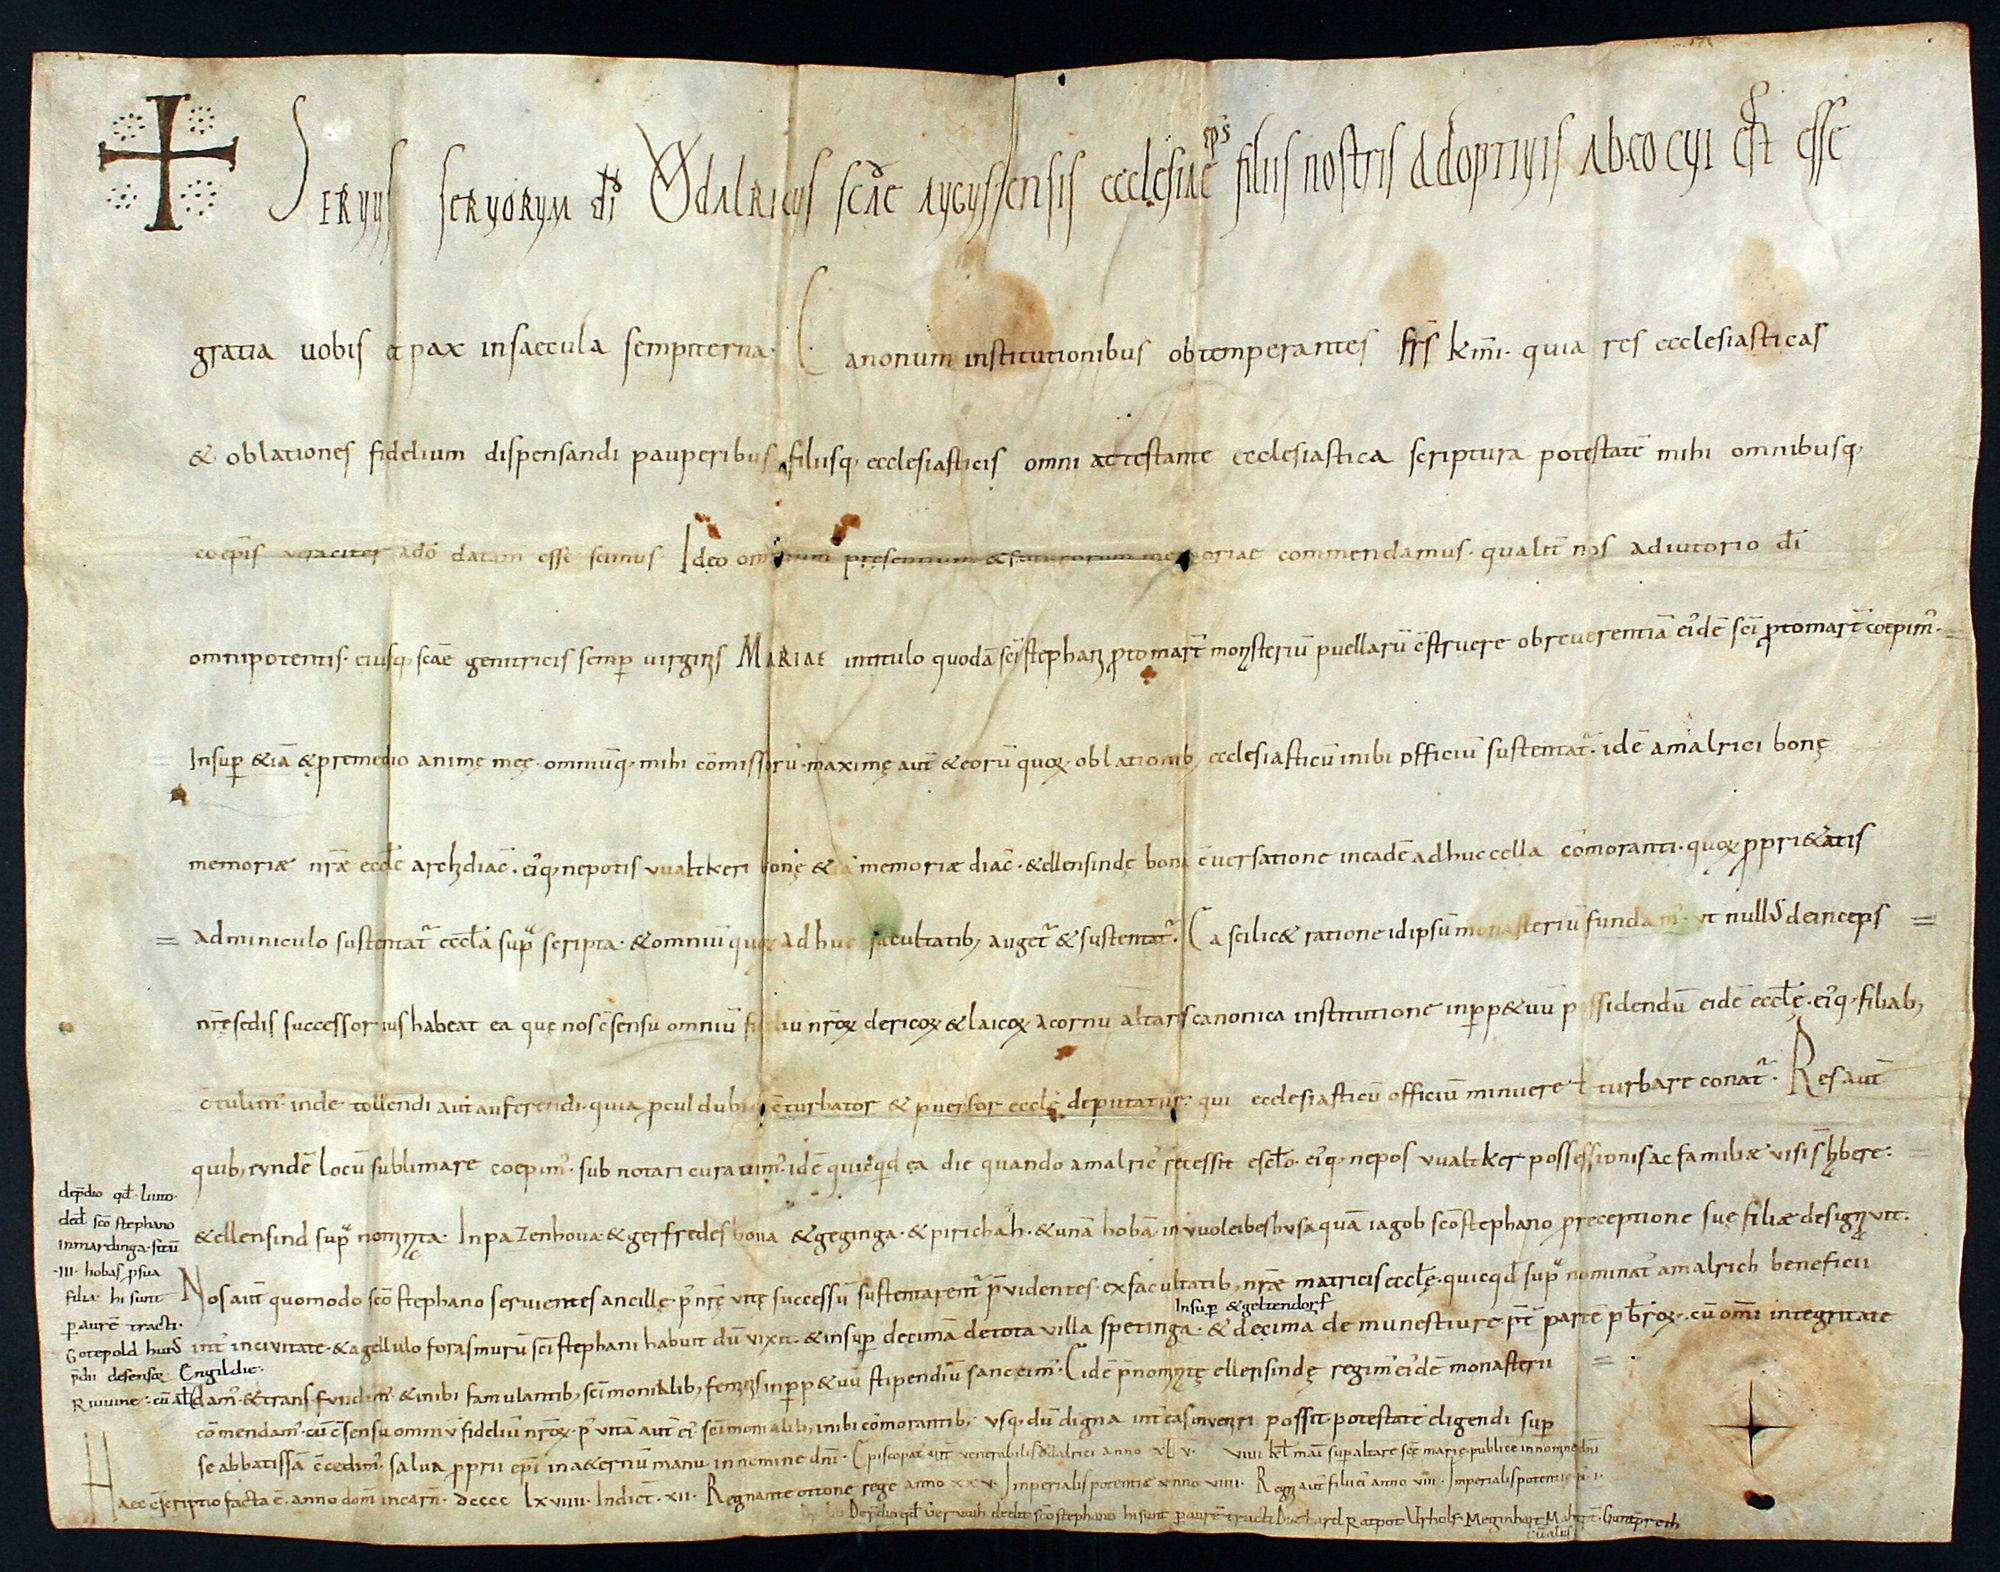 SERVVS SERVORVM dī VOdALRICVS SCAE AVGVSTENSIS ECCLESIAE ep̄s FILIIS NOSTRIS AdOPTIVIS AB EO CVI EST ESSE
gratia uobis et pax insaecula sempiterna. Canonum institutionibus obtemperantes frs̄ km̄i. quia res ecclesiasticas
& oblationes fidelium dispensandi pauperibus filiisq; ecclesiasticis omni attestante ecclesiastica scriptura potestatē mihi omnibusq;
coepīs veraciter adō datam esse scimus Ideo omnium pręsentium & futurorum memoriae commendamus. qualit̄ nos adiutorio dī
omnipotentis. eiusq; scāe genitricis semp virginis MARIAE intitulo quodā scī stephani protomart̄ monysteriū puellarū c̄struere obreuerentiā eiꝰdē scī protomart̄ coepimꝰ.
Insup &iā & premedio animę meę. omniūq; mihi cōmissorū. maximę aut̄ & eorū quoꝝ oblationib; ecclesiasticū inibi officiū sustentat̄. idē amalrici bonę
memoriæ nrāe eccl̄e archidiac̄. eiꝰq; nepotis vualtkeri bonę &iā memoriæ diac̄. & ellensindę bona c̄uersatione ineadē adhuc cella cōmoranti. quoꝝ ppri&atis
adminiculo sustentat̄ eccl̄a sup scripta. & omniū quoꝝ adhuc facultatib; auget̄ & sustentat̄. Ea scilic& ratione idipsū monasteriū fundamꝰ. vt nullꝰ deinceps
nrę̄ sedis successor ius habeat ea quę nos c̄sensu omniū fideliū nrōꝝ clericoꝝ & laicoꝝ acornu altaris canonica institutione inpp&uū possidendū eidē eccl̄ę. eiꝰq; filiab;
c̄tulimꝰ inde tollendi aut auferendi. quia pcul dubio c̄turbator & puersor eccl̄ę deputatur. qui ecclesiasticū officiū minuere ł turbare conat̄. Res aut̄
quib; eundē locū sublimare coepimꝰ. sub notari curauimꝰ. idē quicq̄d ea die quando amalricꝰ recessit esclo. eiꝰq; nepos vualtker possessionis ac familiæ uisi s̄ hbere:
& ellensind sup nominata. In pazenhoua. & gerfredeshoua & geginga. & pirichah. & unā hobā. in vuoleibeshusa quā iagob scō stephano preceptione suę filiæ designuit.
Nos aut̄ quomodo scō stephano seruientes ancillę. p nrę̄ uitę successū sustentarent̄ puidentes. ex facultatib; nrǣ matricis eccl̄ę. quicq̄d sup nominatꝰ amalrich beneficii
Insup & geltendorf
int̄ inciuitate. & agellulo foras murū scī stephani habuit dū vixit. & insup decimā detota villa spetinga. & decima de munestiure p̄t partē pbrōꝝ. cū omī integritate
damꝰ. & transfundimꝰ. & inibi famulantib; scīmonialib; feminis inpp&uū stipendiū sanccimꝰ. Eidē pnominatę ellensindę regimꝰ eiꝰdē monasterii
cōmendamꝰ. cū c̄sensu omniū fideliū nrōꝝ. p uitā aut̄ eiꝰ scīmonialib; inibi cōmorantib; vsq; dū digna int̄ eas inueniri possit. potestatē eligendi sup
se abbatissā c̄cedimꝰ. salua pprii epī inaeternū manu. in nomine dn̄i. Episcopat̄ aut̄ venerabilis odalrici anno xlv. viiii kl̄ mai sup altare scę̄ marię. publice innomine dn̄i
Haec c̄scriptio facta ē. anno domī incarn̄. dcccc lxviiii. Indict̄. xii. Regnante ottone rege anno xxv. Imperialis potentiæ anno viiii. Regni aut̄ filii eiꝰ anno viii. Imperialis potentię ii.
De pdio qd̄ dedit scō stephano hi sunt p aurē tracti Diethard Ratpot Vrholf. Meginhart Guntprech
alius
depdio qd̄. liuto.
ded̄ scō stephano
inmardinga. sitū
.III. hobas p sua
filia. hi sunt
p aurē tracti.
Gotepold huiꝰ
pdii defensor Engildie.
Riuuine. cū